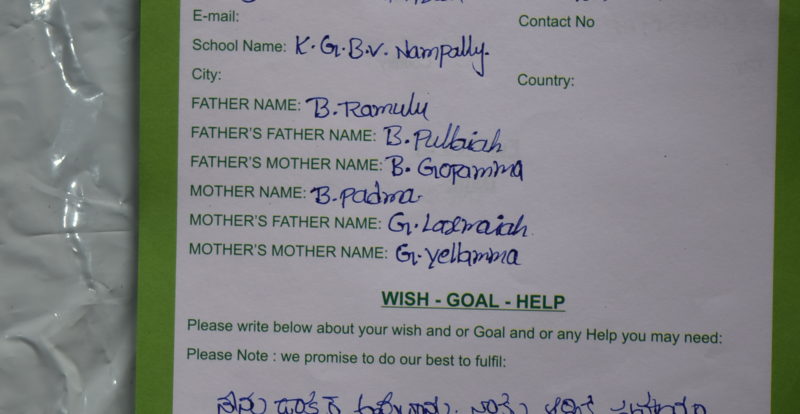 E-mail: Contact No
School Name: K.G.B.V. Nampally.
City: Country:
FATHER NAME: B. Ramulu
FATHER'S FATHER NAME: B. Pullaiah
FATHER'S MOTHER NAME: B. Gopamma
MOTHER NAME: B. Padma.
MOTHER'S FATHER NAME: G. Laxmaiah
MOTHER'S MOTHER NAME: G. Yellamma
WISH - GOAL - HELP
Please write below about your wish and or Goal and or any Help you may need:
Please Note : we promise to do our best to fulfil: